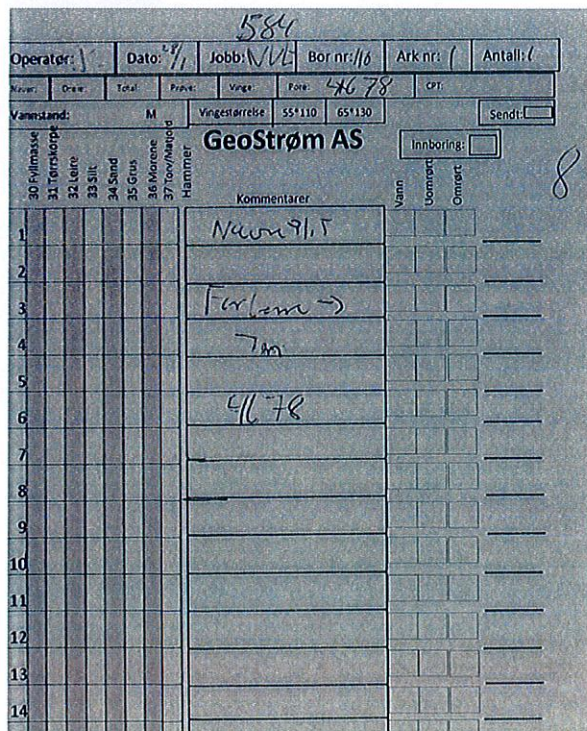 1584
Operatør: Dato: 28/1 Jobb: NVE Bor nr: 116 Ark nr: 1 Antall: 1
Navar: Dreie: Total: Prøve: Vinge: Pore: 41678 CPT:
Vannstand: M Vingestørrelse 55*110 65*130 Sendt:
GeoStrøm AS Innboring:
8
30 Fyllmasse
31 Tørrskorpe
32 Leire
33 Silt
34 Sand
35 Grus
36 Morene
37 Torv/Matjord
Hammer
Kommentarer
Vann
Uomrørt
Omrørt
1
2
3
4 7m
5
6 41678
7
8
9
10
11
12
13
14